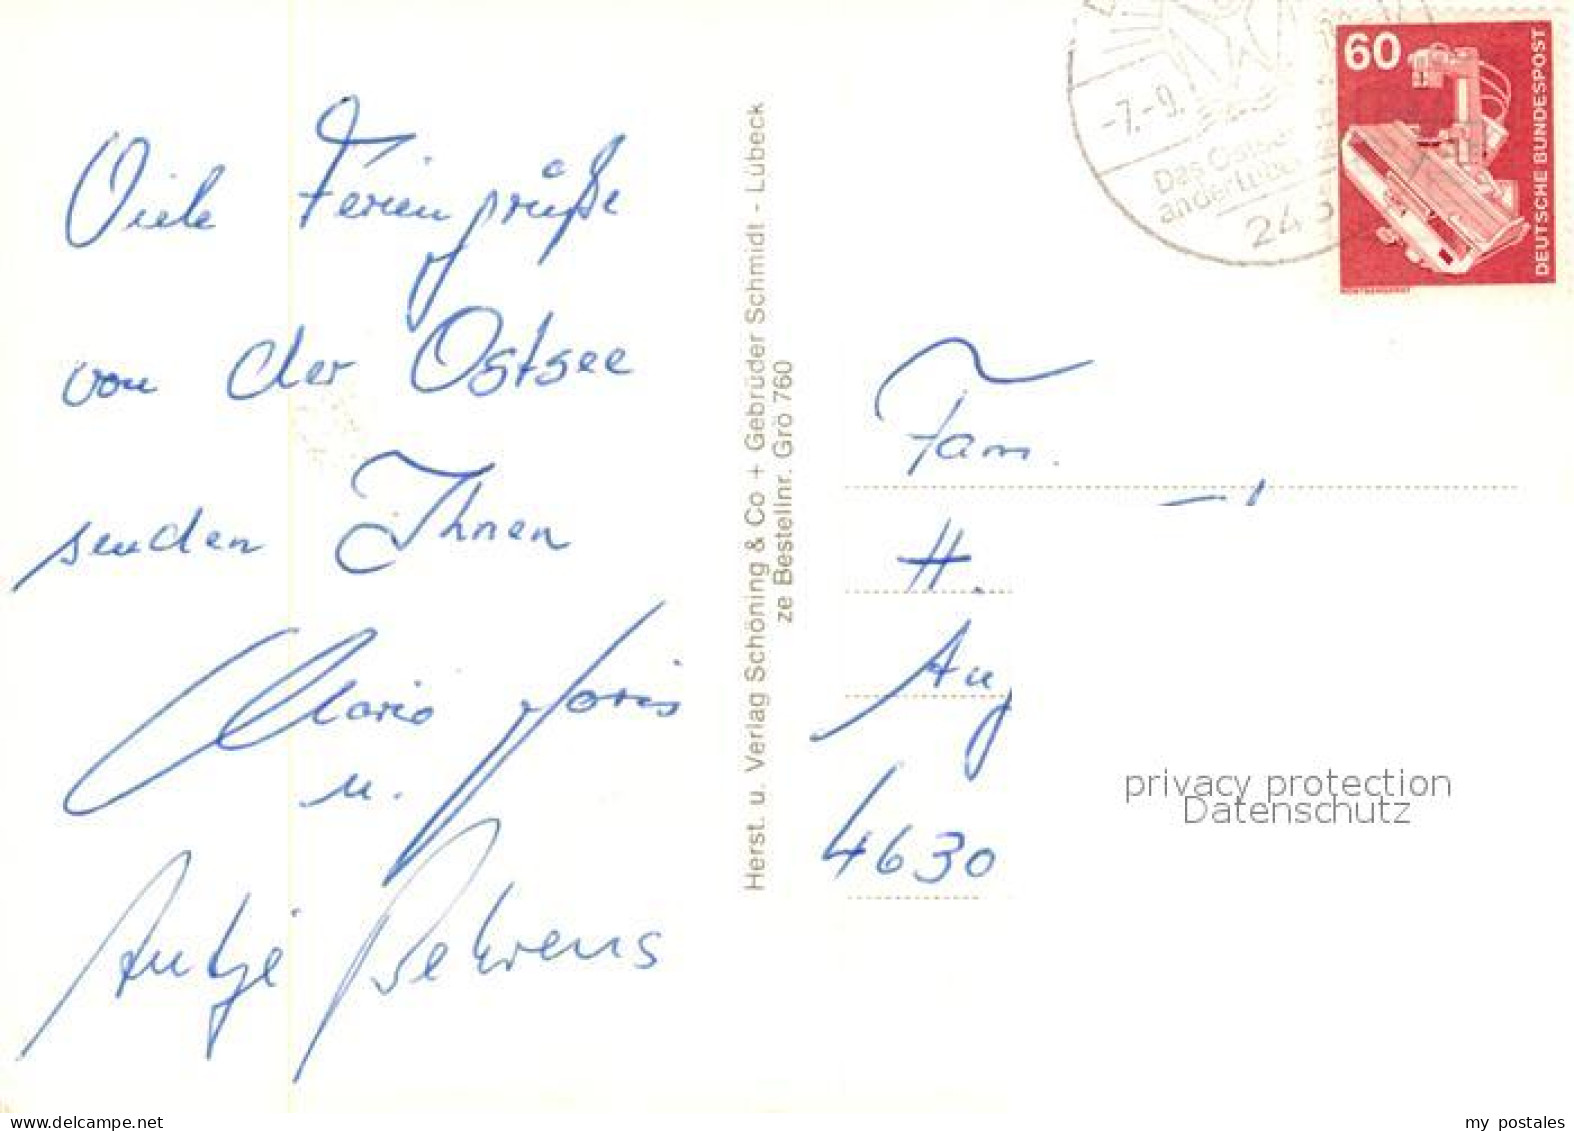 Viele Feriengrüße
von der Ostsee
senden Ihnen
Mario Joris
u.
Antje Behrens
Herst. u. Verlag Schöning & Co + Gebrüder Schmidt - Lübeck
ze Bestellnr. Grö 760
-7.-9.
Das Ostse
an der Lübe
24
60
DEUTSCHE BUNDESPOST
Fam.
H.
Aug
4630
privacy protection
Datenschutz
www.delcampe.net
my_postales